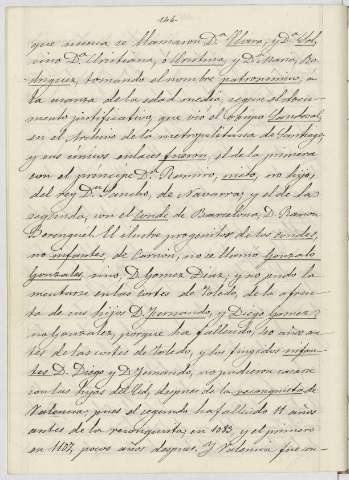 144.
que nunca se llamaron D.ª Elvira, y D.ª Sol,
sino D.ª Cristiana, ó Cristina, y D.ª María, Ro-
driguez, tomando el nombre patronímico, á
la usanza de la edad media, segun el docu-
mento justificativo, que vió el Obispo Sandoval
en el Archivo de la metropolitana de Santiago,
y sus únicos enlaces fueron, el de la primera
con el principe D. Ramiro, nieto, no hijo,
del rey D. Sancho, de Navarra; y el de la
segunda, con el Conde de Barcelona, D. Ramon
Berenguel. El ilustre progenitor de los condes,
no infantes, de Carrion, no se llamó Gonzalo
Gonzales, sino, D. Gomez Diaz, y no pudo la-
mentarse en las Cortes de Toledo, de la afren-
ta de sus hijos D. Fernando, y Diego Gomez,
no Gonzalez, porque ha fallecido, 10 años an-
tés de las cortes de Toledo, y los fingidos infan-
tes D. Diego y D. Fernando, no pudieron casarse
con las hijas del Cid, despues de la reconquista de
Valencia; pues el segundo ha fallecido 11 años
antes de la reconquista, en 1083, y el primero
en 1107, pocos años despues. Y Valencia fue re-